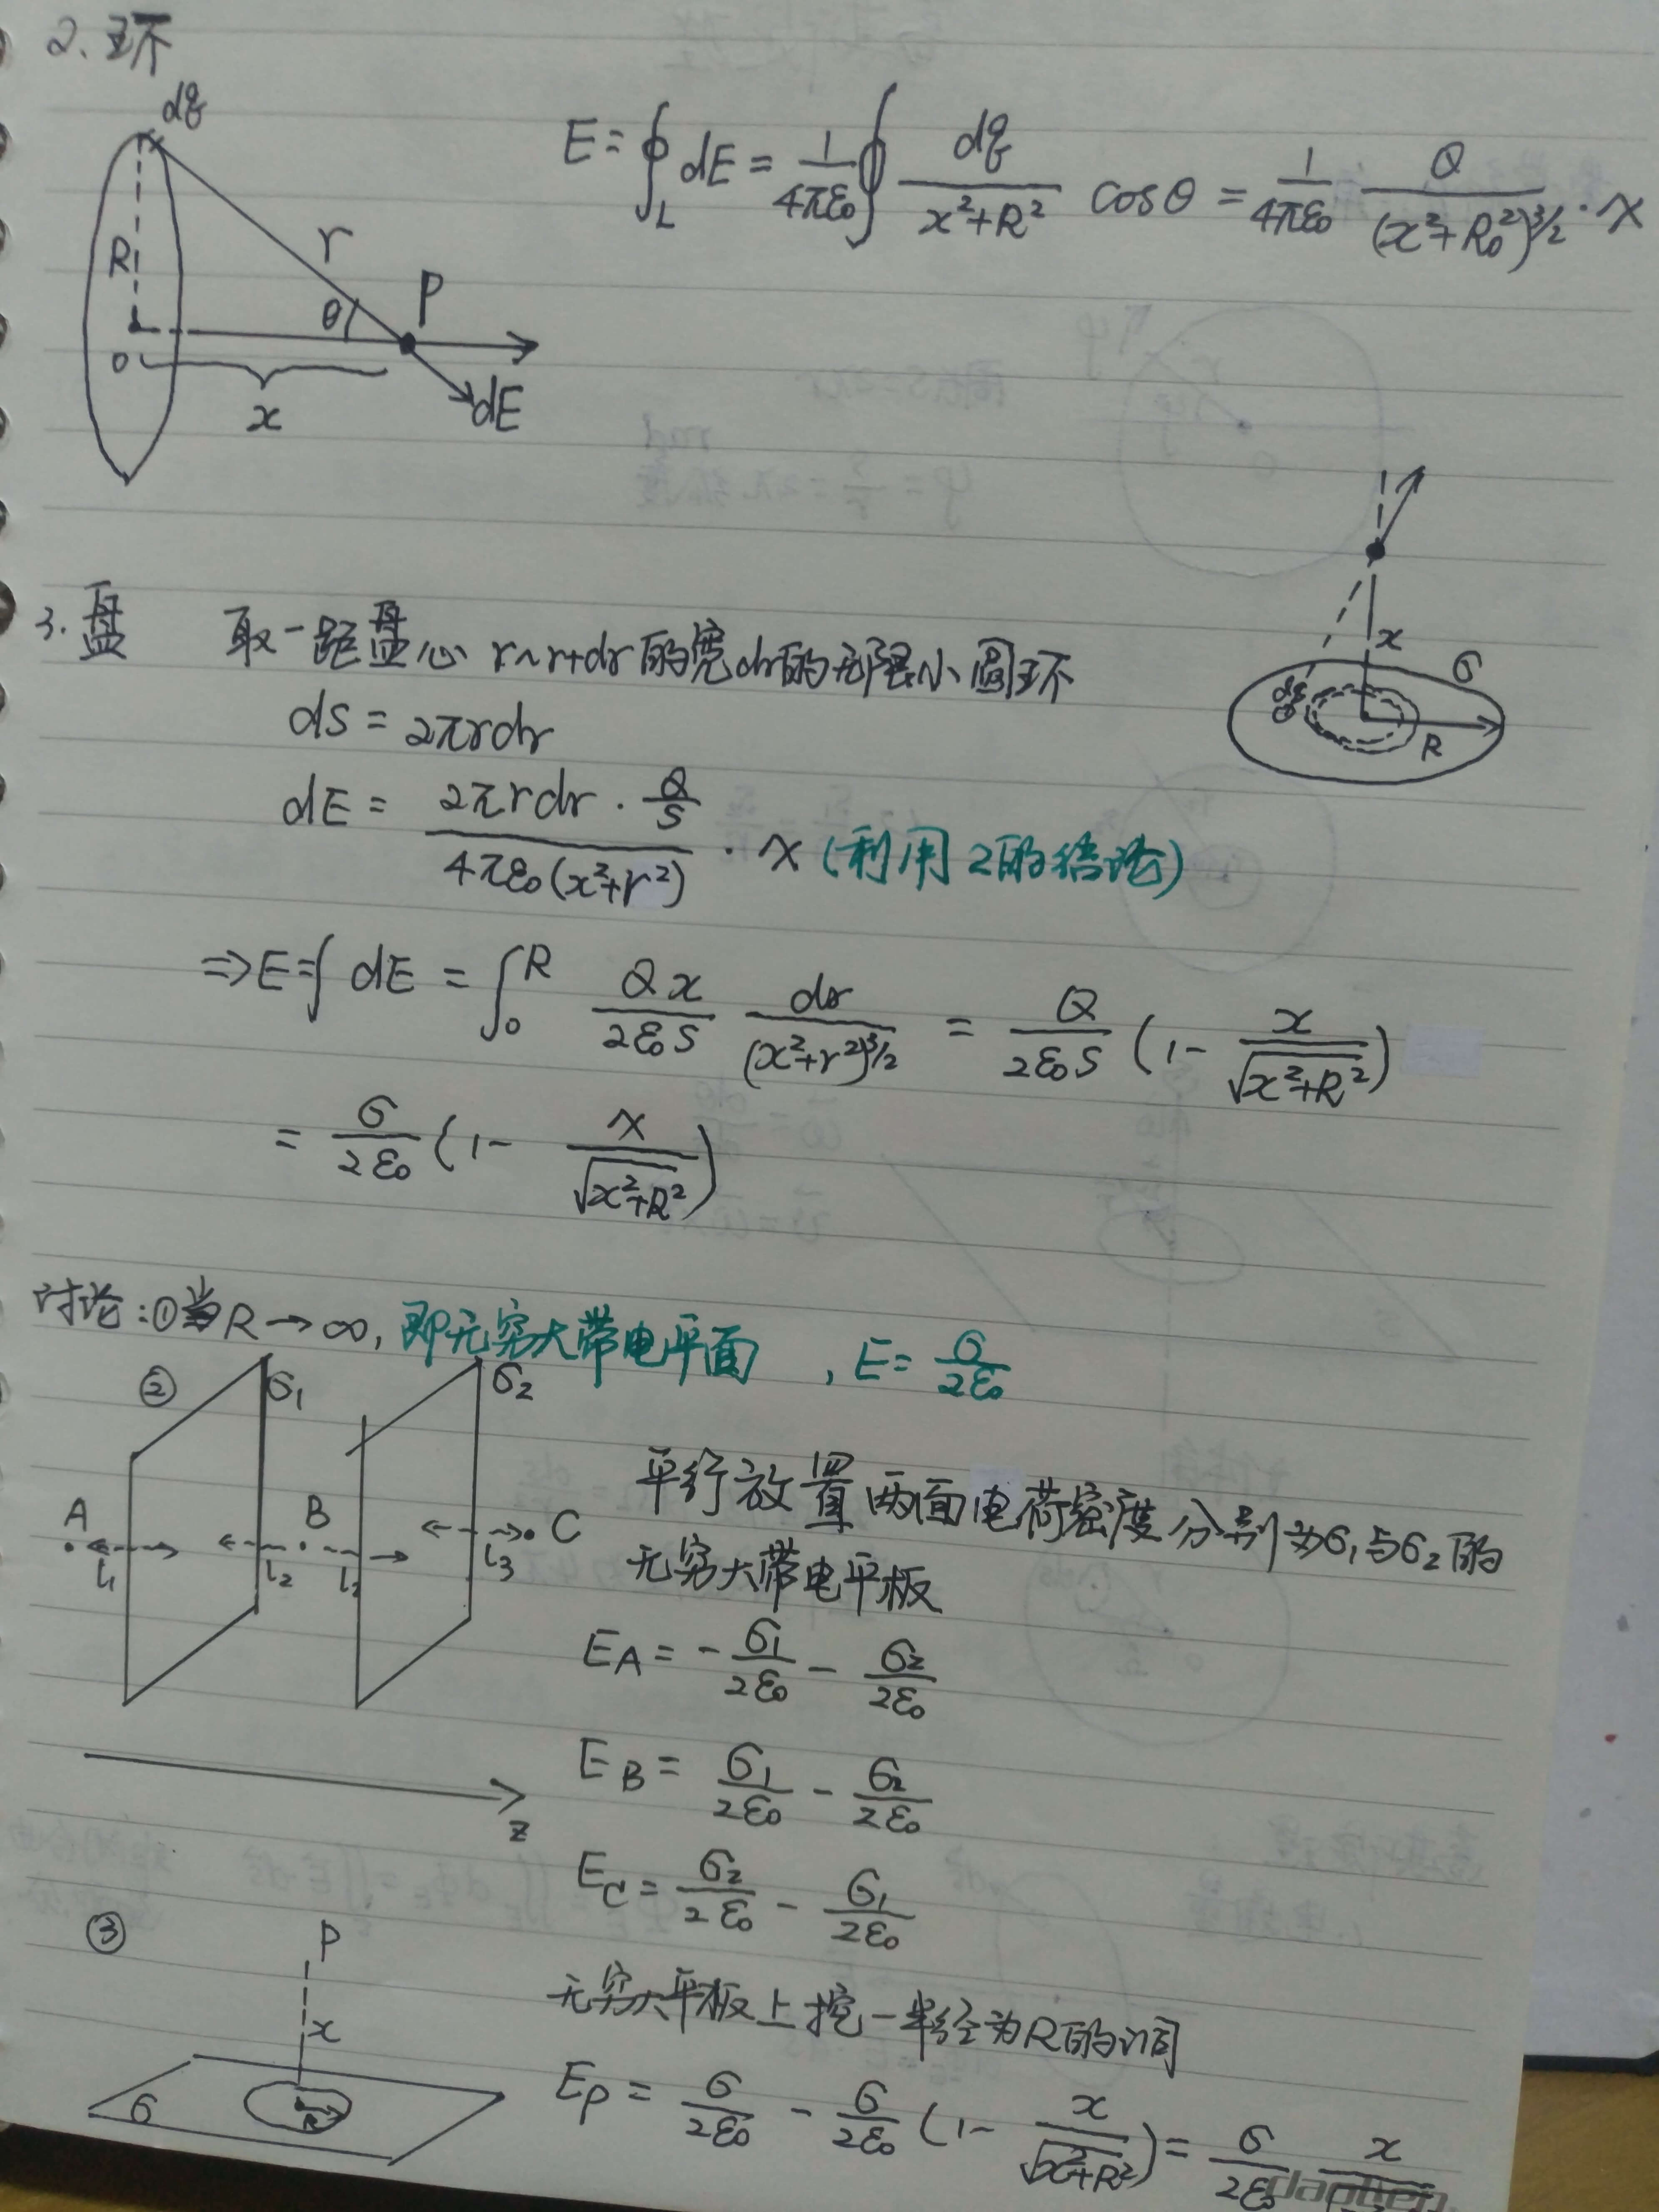 2. 环
dq
R
r
θ
P
O
x
dE
E = ∮_L dE = 1/(4πε₀) ∮ dq/(x²+R²) cosθ = 1/(4πε₀) Q/(x²+R₀²)^(3/2) · x
3. 盘 取一距盘心 r~r+dr的宽dr的无限小圆环
x
σ
dq
R
dS = 2πrdr
dE = (2πrdr · Q/S)/(4πε₀(x²+r²)) · x (利用2的结论)
⇒ E = ∫ dE = ∫₀^R Qx/(2ε₀S) dr/(x²+r²)^(3/2) = Q/(2ε₀S) (1 - x/√(x²+R²))
= σ/(2ε₀) (1 - x/√(x²+R²))
讨论:①当R→∞, 即无穷大带电平面 , E = σ/(2ε₀)
②
σ₁
σ₂
A
B
C
l₁
l₂
l₂
l₃
z
平行放置两面电荷密度分别为σ₁与σ₂的
无穷大带电平板
E_A = -σ₁/(2ε₀) - σ₂/(2ε₀)
E_B = σ₁/(2ε₀) - σ₂/(2ε₀)
E_C = σ₂/(2ε₀) - σ₁/(2ε₀)
③
P
x
R
σ
无穷大平板上挖一半径为R的洞
E_P = σ/(2ε₀) - σ/(2ε₀) (1 - x/√(x²+R²)) = σ/(2ε₀) x/